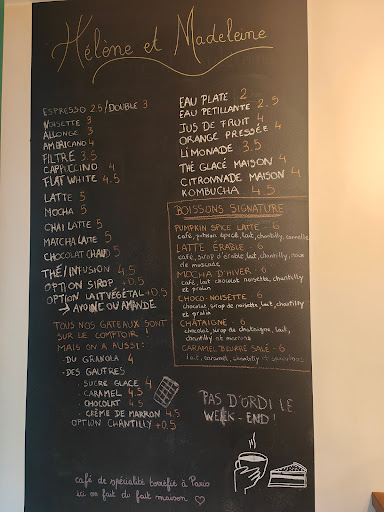 Hélène et Madeleine
ESPRESSO 2.5 / DOUBLE 3
NOISETTE 3
ALLONGÉ 3
AMERICANO 4
FILTRE 3.5
CAPPUCCINO 4
FLAT WHITE 4.5
LATTE 5
MOCHA 5
CHAI LATTE 5
MATCHA LATTE 5
CHOCOLAT CHAUD 5
THÉ/INFUSION 4.5
OPTION SIROP +0.5
OPTION LAIT VÉGÉTAL +0.5
→ AVOINE OU AMANDE
TOUS NOS GATEAUX SONT
SUR LE COMPTOIR !
MAIS ON A AUSSI :
- DU GRANOLA 4
- DES GAUFRES
- SUCRE GLACE 4
- CARAMEL 4.5
- CHOCOLAT 4.5
- CRÈME DE MARRON 4.5
OPTION CHANTILLY +0.5
café de spécialité torréfié à Paris
ici on fait du fait maison
EAU PLATE 2
EAU PETILLANTE 2.5
JUS DE FRUIT 4
ORANGE PRESSÉE 4
LIMONADE 3.5
THÉ GLACÉ MAISON 4
CITRONNADE MAISON 4
KOMBUCHA 4.5
BOISSONS SIGNATURE
PUMPKIN SPICE LATTE - 6
café, potiron épicé, lait, chantilly, cannelle
LATTE ÉRABLE - 6
café, sirop d'érable, lait, chantilly, noix
de muscade
MOCHA D'HIVER - 6
café, lait chocolat noisette, chantilly
et pralin
CHOCO-NOISETTE - 6
chocolat, sirop de noisette, lait, chantilly
et pralin
CHÂTAIGNE - 6
chocolat, sirop de chataigne, lait,
chantilly et marrons
CARAMEL BEURRE SALÉ - 6
lait, caramel, chantilly et
PAS D'ORDI LE
WEEK-END !